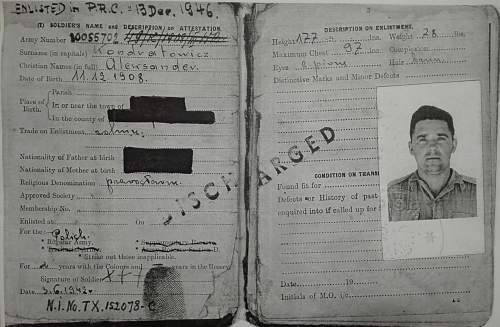 ENLISTED in P.R.C. = 13 Dec. 1946.
(1) SOLDIER'S NAME and DESCRIPTION on ATTESTATION.
Army Number 30055702
Surname (in capitals) Kondratowicz
Christian Names (in full) Aleksander
Date of Birth 11.12 1908.
Place of Birth.
Parish
In or near the town of
In the county of
Trade on Enlistment
Nationality of Father at birth
Nationality of Mother at birth
Religious Denomination
Approved Society
Membership No.
Enlisted at On
For the: Polish
* Regular Army.
* Strike out those inapplicable.
For years with the Colours and years in the Reserve.
Signature of Soldier +++
Date 3.6.1942.
N.I.No.TX.152078-C
DISCHARGED
DESCRIPTION ON ENLISTMENT.
Height 177 ft. ins. Weight 78 lbs.
Maximum Chest 97 ins. Complexion
Eyes Hair
Distinctive Marks and Minor Defects
CONDITION ON TRANS
Found fit for
Defects or History of past
enquired into if called up for
Date 19
Initials of M.O. i/c